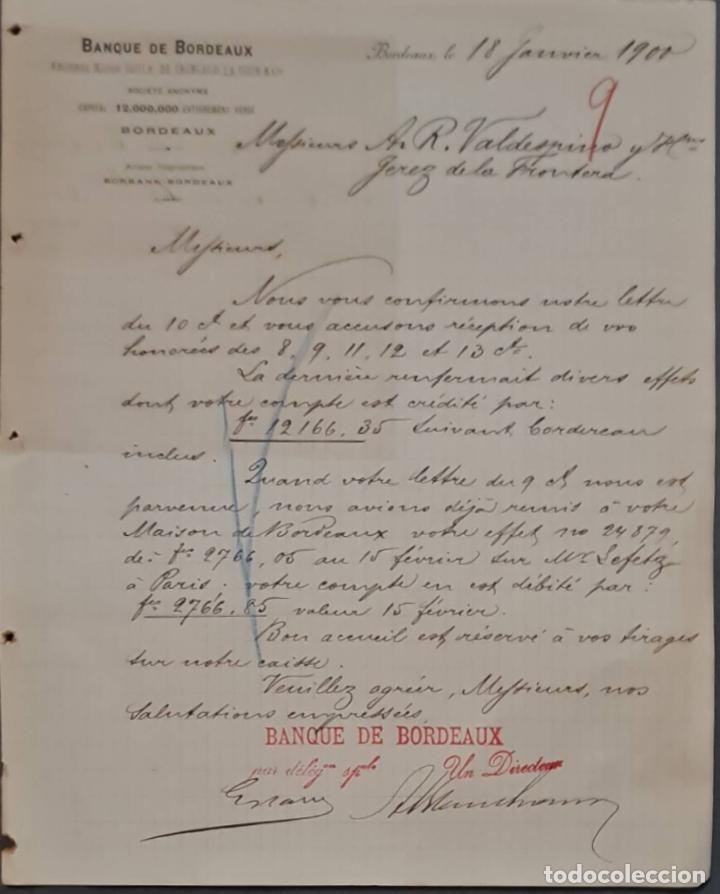 BANQUE DE BORDEAUX
SOCIÉTÉ ANONYME
CAPITAL 12.000,000 ENTIÈREMENT VERSÉ
BORDEAUX
BORBANK-BORDEAUX
Bordeaux, le 18 Janvier 1900
9
Messieurs A. R. Valdespino y Hnos
Jerez de la Frontera.
Messieurs,
Nous vous confirmons notre lettre
du 10 ct et vous accusons réception de vos
honorées des 8, 9, 11, 12 et 13 ct.
La dernière renfermait divers effets
dont votre compte est crédité par:
fcs 12166,35 suivant bordereau
inclus.
Quand votre lettre du 9 ct nous est
parvenue, nous avions déjà remis à votre
Maison de Bordeaux votre effet no 24879,
de: fcs 2766,05 au 15 février sur Mr
à Paris. votre compte en est débité par:
fcs 2766,85 valeur 15 février.
Bon accueil est réservé à vos tirages
sur notre caisse.
Veuillez agréer, Messieurs, nos
salutations empressées,
BANQUE DE BORDEAUX
par délégon sple Un Directeur
todocoleccion.net